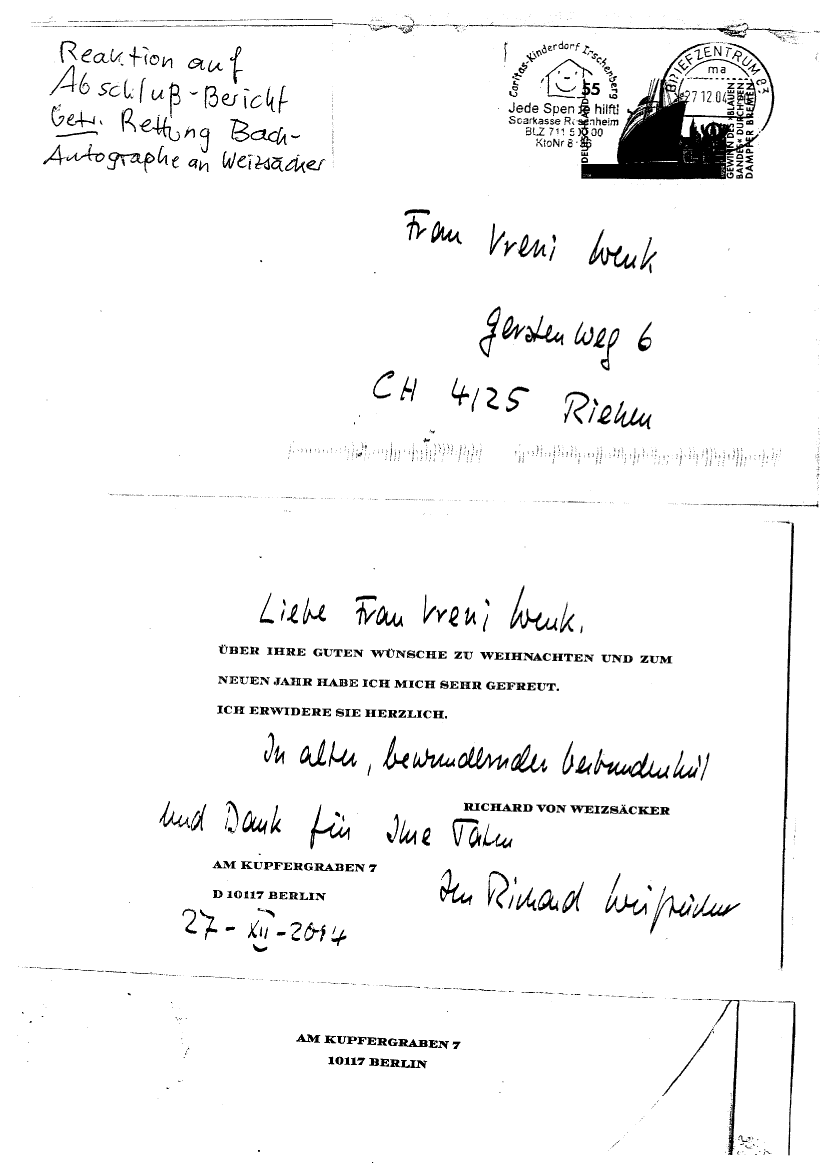 Reaktion auf
Abschluß-Bericht
betr. Rettung Bach-
Autographe an Weizsäcker
Caritas-Kinderdorf Irschenberg
Jede Spende hilft!
Sparkasse Rosenheim
BLZ 711 500 00
KtoNr 8
55
DEUTSCHLAND
BRIEFZENTRUM 83
ma
27.12.04
GEWINN DES »BLAUEN
BANDES« DURCH DEN
DAMPFER BREMEN
Frau Vreni Wenk
Gerstenweg 6
CH 4125 Riehen
Liebe Frau Vreni Wenk,
ÜBER IHRE GUTEN WÜNSCHE ZU WEIHNACHTEN UND ZUM
NEUEN JAHR HABE ICH MICH SEHR GEFREUT.
ICH ERWIDERE SIE HERZLICH.
In alter, bewundernder Verbundenheit
RICHARD VON WEIZSÄCKER
und Dank für Ihre Taten
AM KUPFERGRABEN 7
Ihr Richard Weizsäcker
D 10117 BERLIN
27-XII-2004
AM KUPFERGRABEN 7
10117 BERLIN